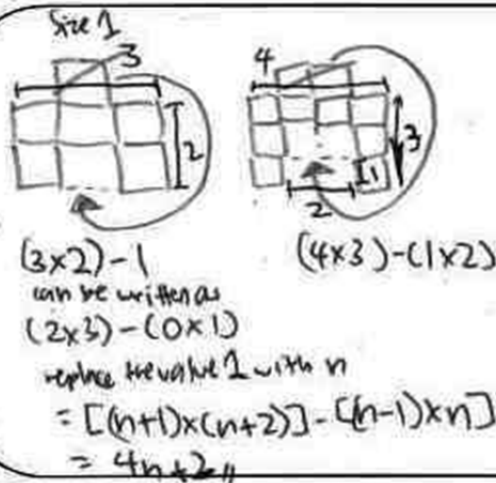 Size 1
3
2
4
3
1
2
(3×2)-1
(4×3)-(1×2)
can be written as
(2×3)-(0×1)
replace the value 1 with n
= [(n+1)×(n+2)]-[(n-1)×n]
= 4n+2,,